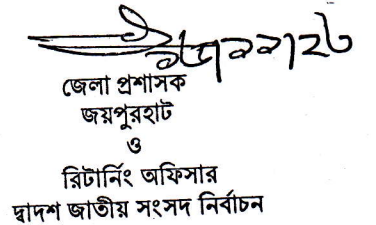 জেলা প্রশাসক
জয়পুরহাট
ও
রিটার্নিং অফিসার
দ্বাদশ জাতীয় সংসদ নির্বাচন